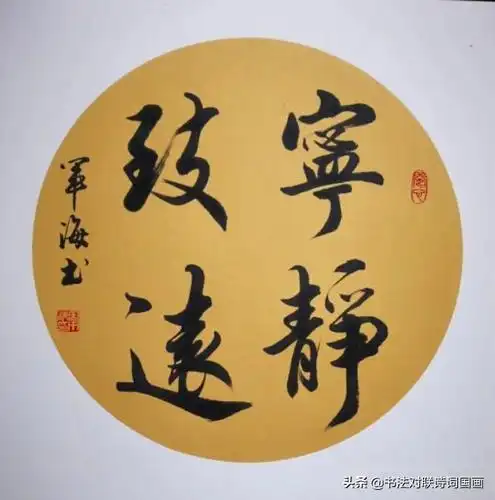 寧靜
致遠
軍海书
头条@书法对联诗词国画